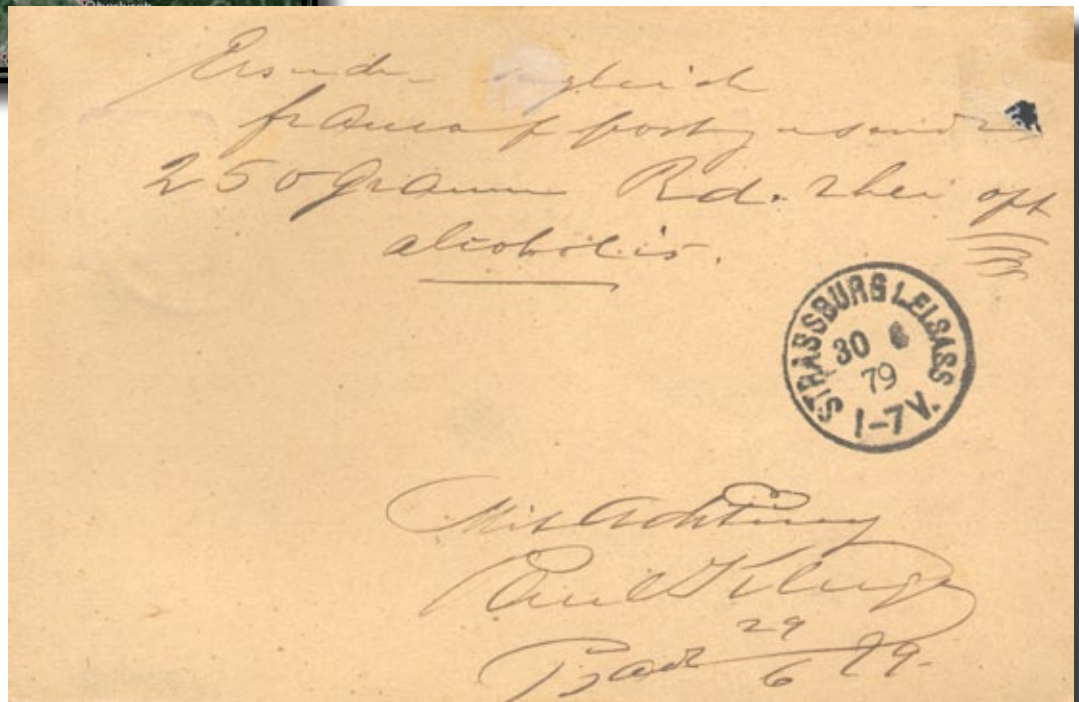 Ersuche sogleich
franco p post zusenden
250 Gramm Rd. Rhei opt
alcoholis.
STRASSBURG I. ELSASS
30 6
79
1-7 V.
Mit Achtung
Paul
29
6 79.